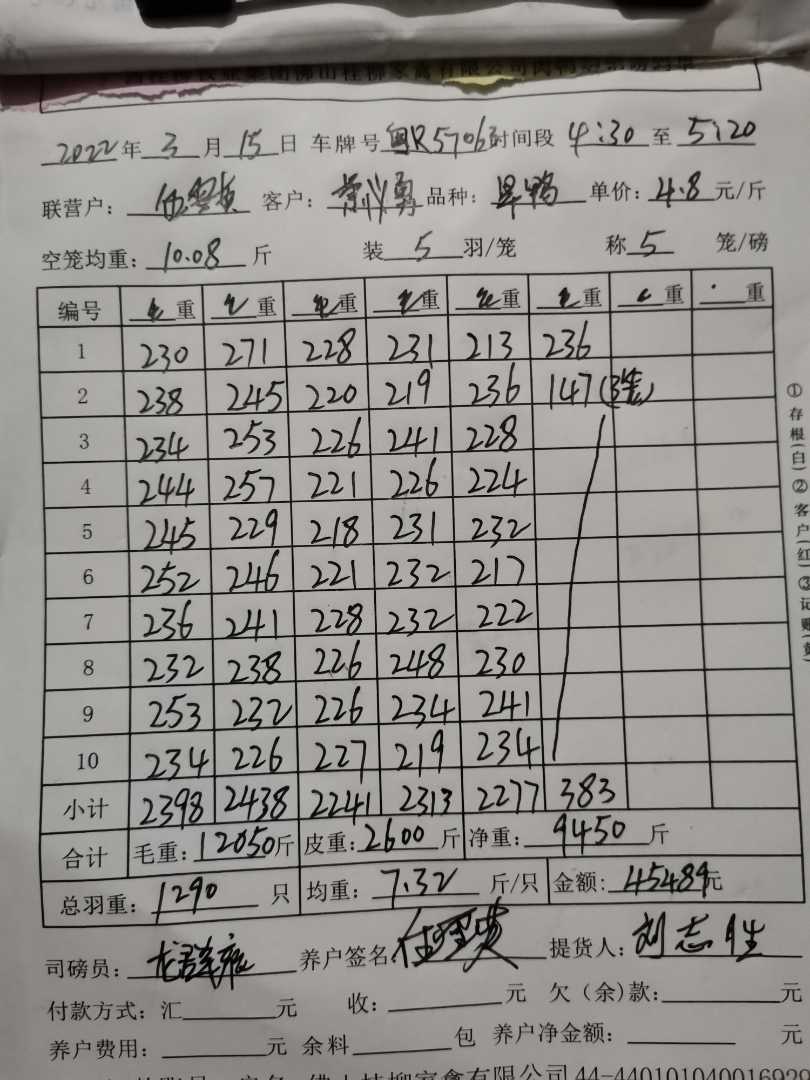 2022年3月15日 车牌号粤R57063时间段 4:30 至 5:20
联营户: 客户: 品种: 旱鸭 单价:4.8元/斤
空笼均重:10.08斤 装 5 羽/笼 称 5 笼/磅
编号 重 重 重 重 重 重 重 重
1 230 271 228 231 213 236
2 238 245 220 219 236 147(3笼)
3 234 253 226 241 228
4 244 257 221 226 224
5 245 229 218 231 232
6 252 246 221 232 217
7 236 241 228 232 222
8 232 238 226 248 230
9 253 232 226 234 241
10 234 226 227 219 234
小计 2398 2438 2241 2313 2277 383
合计 毛重:12050斤 皮重:2600斤 净重:9450斤
总羽重:1290 只 均重:7.32 斤/只 金额:45489元
司磅员: 养户签名 提货人:刘志胜
付款方式:汇 元 收: 元 欠(余)款: 元
养户费用: 元 余料 包 养户净金额: 元
佛山桂柳家禽有限公司44-440101040016929
①存根(白)②客户(红)③记账(黄)